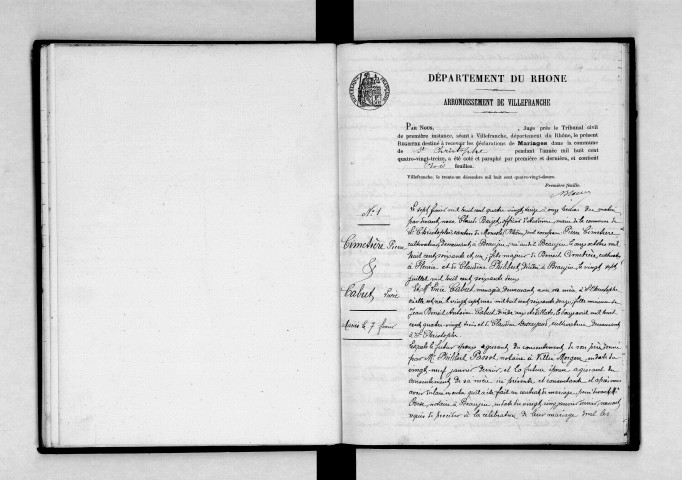 DÉPARTEMENT DU RHONE
ARRONDISSEMENT DE VILLEFRANCHE
PAR NOUS, , Juge près le Tribunal civil
de première instance, séant à Villefranche, département du Rhône, le présent
REGISTRE destiné à recevoir les déclarations de Mariages dans la commune
de St Christophe pendant l'année mil huit cent
quatre-vingt-treize, a été coté et paraphé par première et dernière, et contient
feuilles.
Villefranche, le trente-un décembre mil huit cent quatre-vingt-douze.
Première feuille.
No 1
Cimetière Pierre
&
Cabut Marie
Mariés le 7 février
Le sept février mil huit cent quatre vingt treize à onze heures du matin
par devant nous Claude officier d'état civil, maire de la commune de
St Christophe canton de Monsols Rhône, ont comparu Pierre Cimetière
cultivateur, demeurant à Beaujeu, né à Beaujeu le onze octobre mil
huit cent soixante et un, fils majeur de Benoît Cimetière, cultivateur
à et de Claudine Philibert décédée à Beaujeu le vingt sept
juillet mil huit cent soixante
Et Marie Cabut, ménagère demeurant avec sa mère à St Christophe
elle est née le vingt sept mai mil huit cent soixante douze, fille mineure de
Jean Benoît Antoine Cabut, décédé le mil huit
cent quatre vingt trois et de Claudine cultivatrice demeurant
à St Christophe
Lequel le futur époux agissant du consentement de son père donné
par Me Philibert notaire à Villié Morgon, en date du
vingt-neuf janvier dernier, et la future épouse agissant du
consentement de sa mère ici présente et consentante et après nous
avoir déclaré qu'il a été fait un contrat de mariage, par devant Me
notaire à Beaujeu, en date du vingt cinq janvier dernier,
requis de procéder à la célébration de leur mariage dont les